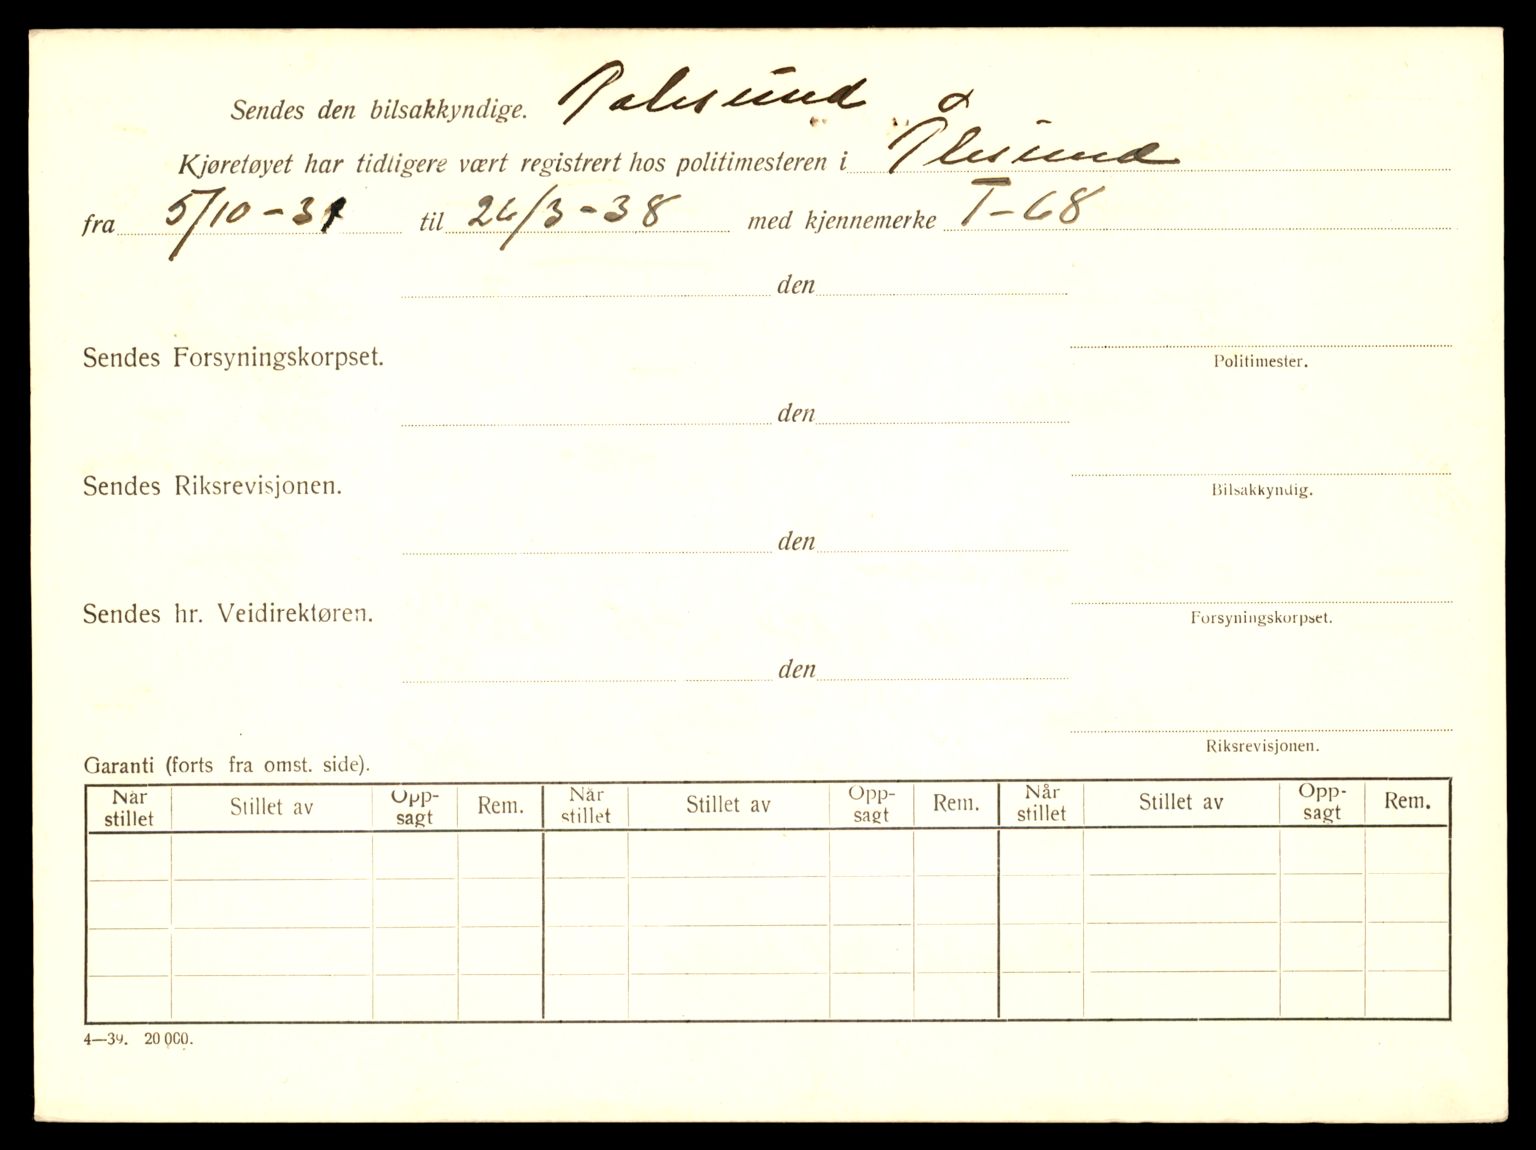 Sendes den bilsakkyndige. Aalesund
Kjøretøyet har tidligere vært registrert hos politimesteren i Ålesund
fra 5/10-31 til 26/3-38 med kjennemerke T-68
den
Sendes Forsyningskorpset.
Politimester.
den
Sendes Riksrevisjonen.
Bilsakkyndig.
den
Sendes hr. Veidirektøren.
Forsyningskorpset.
den
Riksrevisjonen.
Garanti (forts fra omst. side).
Når stillet Stillet av Opp-sagt Rem. Når stillet Stillet av Opp-sagt Rem. Når stillet Stillet av Opp-sagt Rem.
4—39. 20 000.